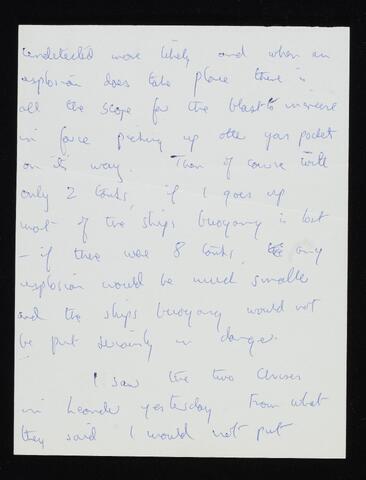 undetected more likely and when an
explosion does take place there is
all the scope for the blast to increase
in force picking up other gas pockets
on its way. Then of course with
only 2 tanks, if 1 goes up
most of the ships buoyancy is lost
- if there were 8 tanks, any
explosion would be much smaller
and the ships buoyancy would not
be put seriously in danger.
I saw the two
in Leander yesterday From what
they said I would not put